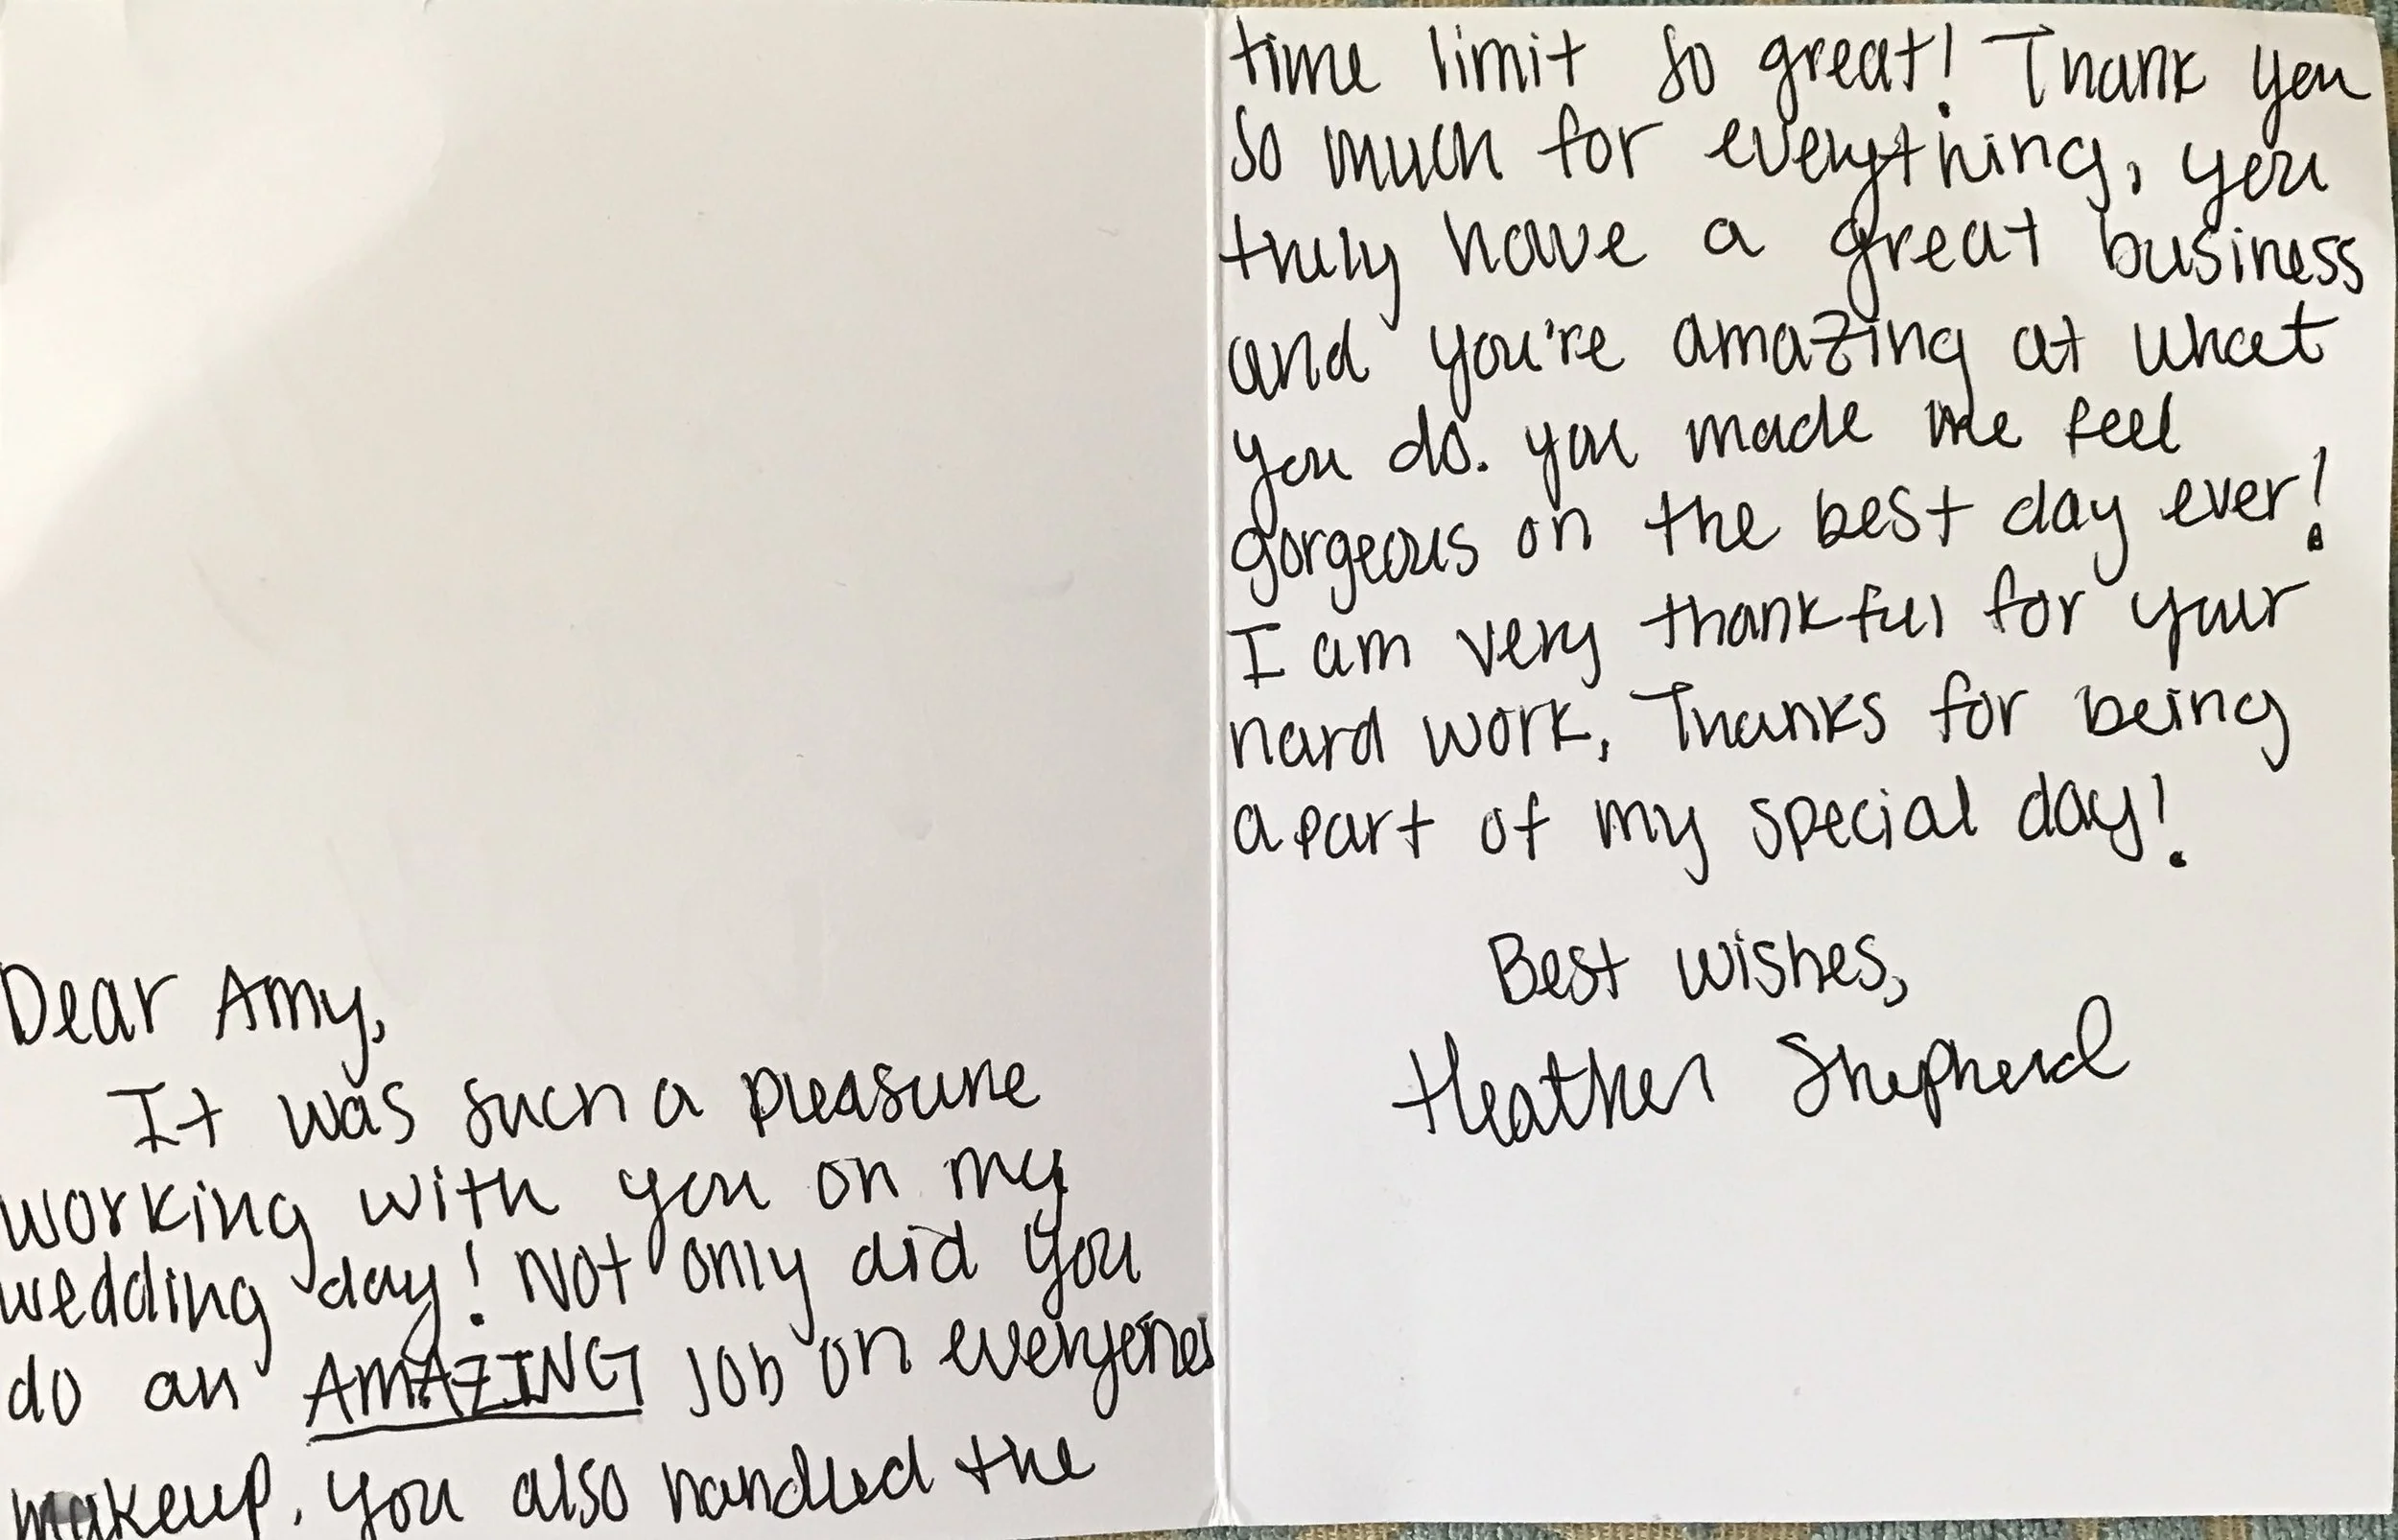 Dear Amy,
It was such a pleasure
working with you on my
wedding day! Not only did you
do an AMAZING job on everyones
makeup, you also handled the
time limit so great! Thank you
so much for everything, you
truly have a great business
and you're amazing at what
you do. you made me feel
gorgeous on the best day ever!
I am very thankful for your
hard work, Thanks for being
a part of my special day!
Best wishes,
Heather Shepherd